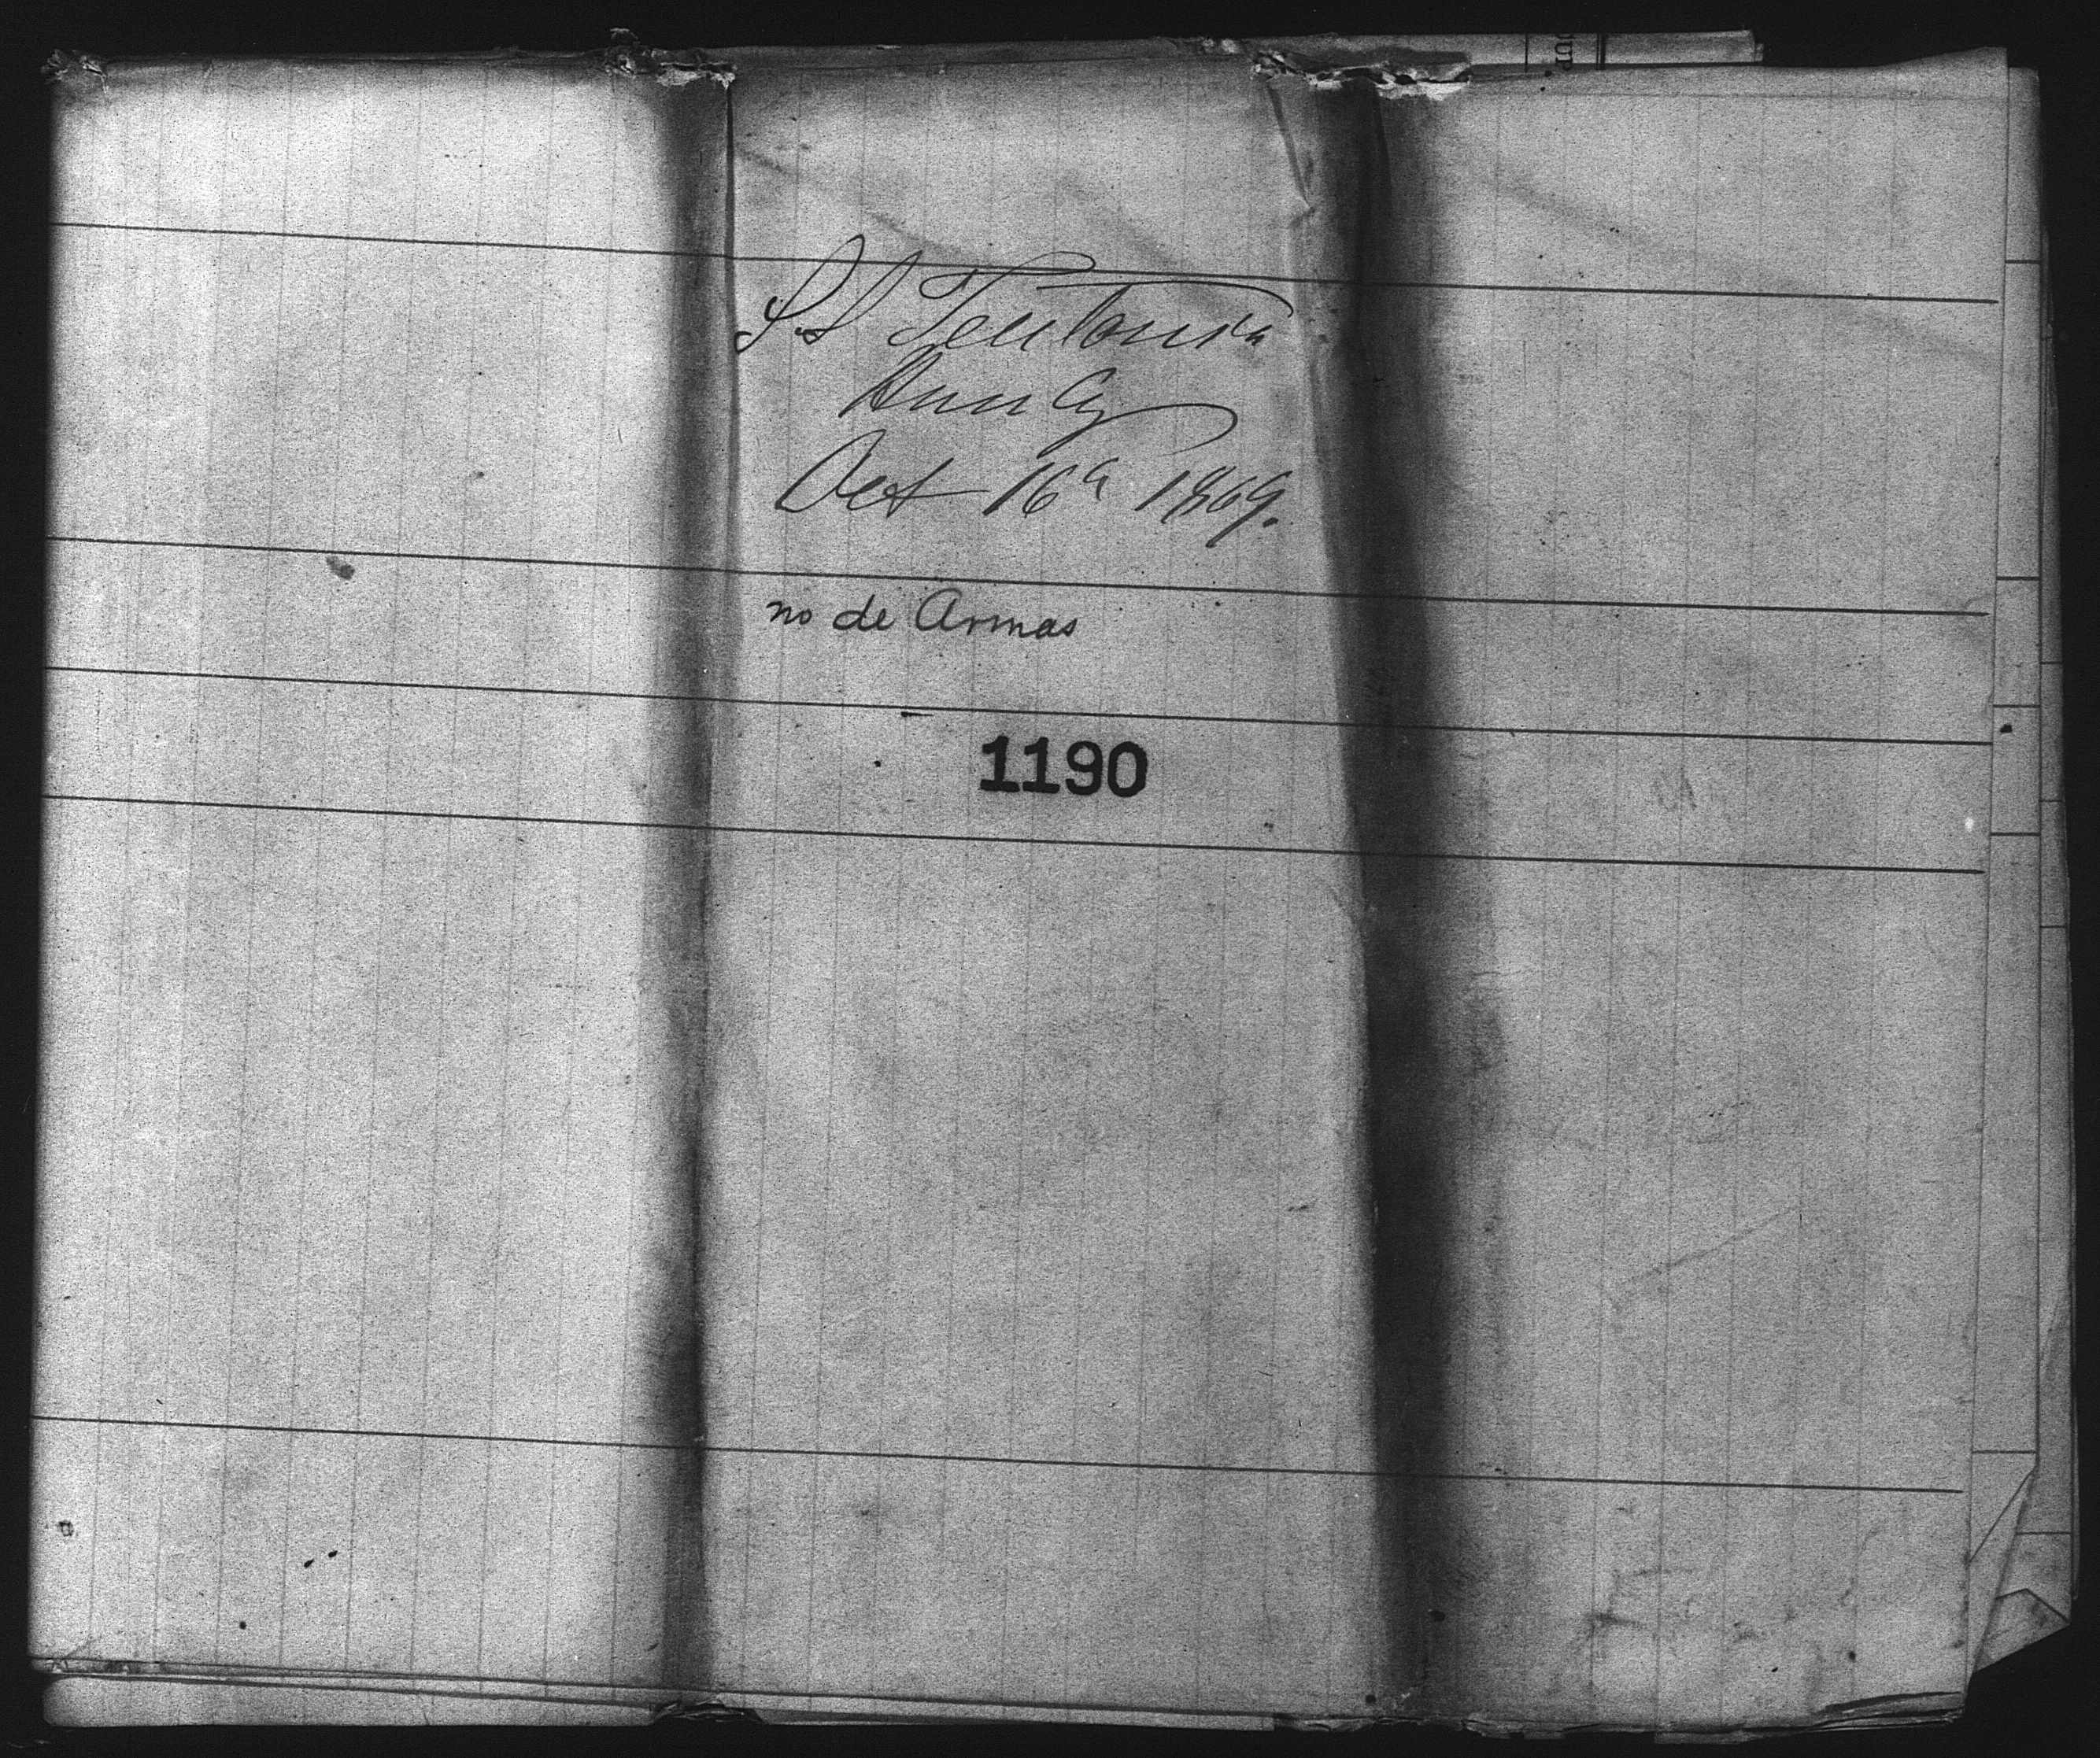 SS Teutonia
Oct 16th 1869.
no de Armas
1190